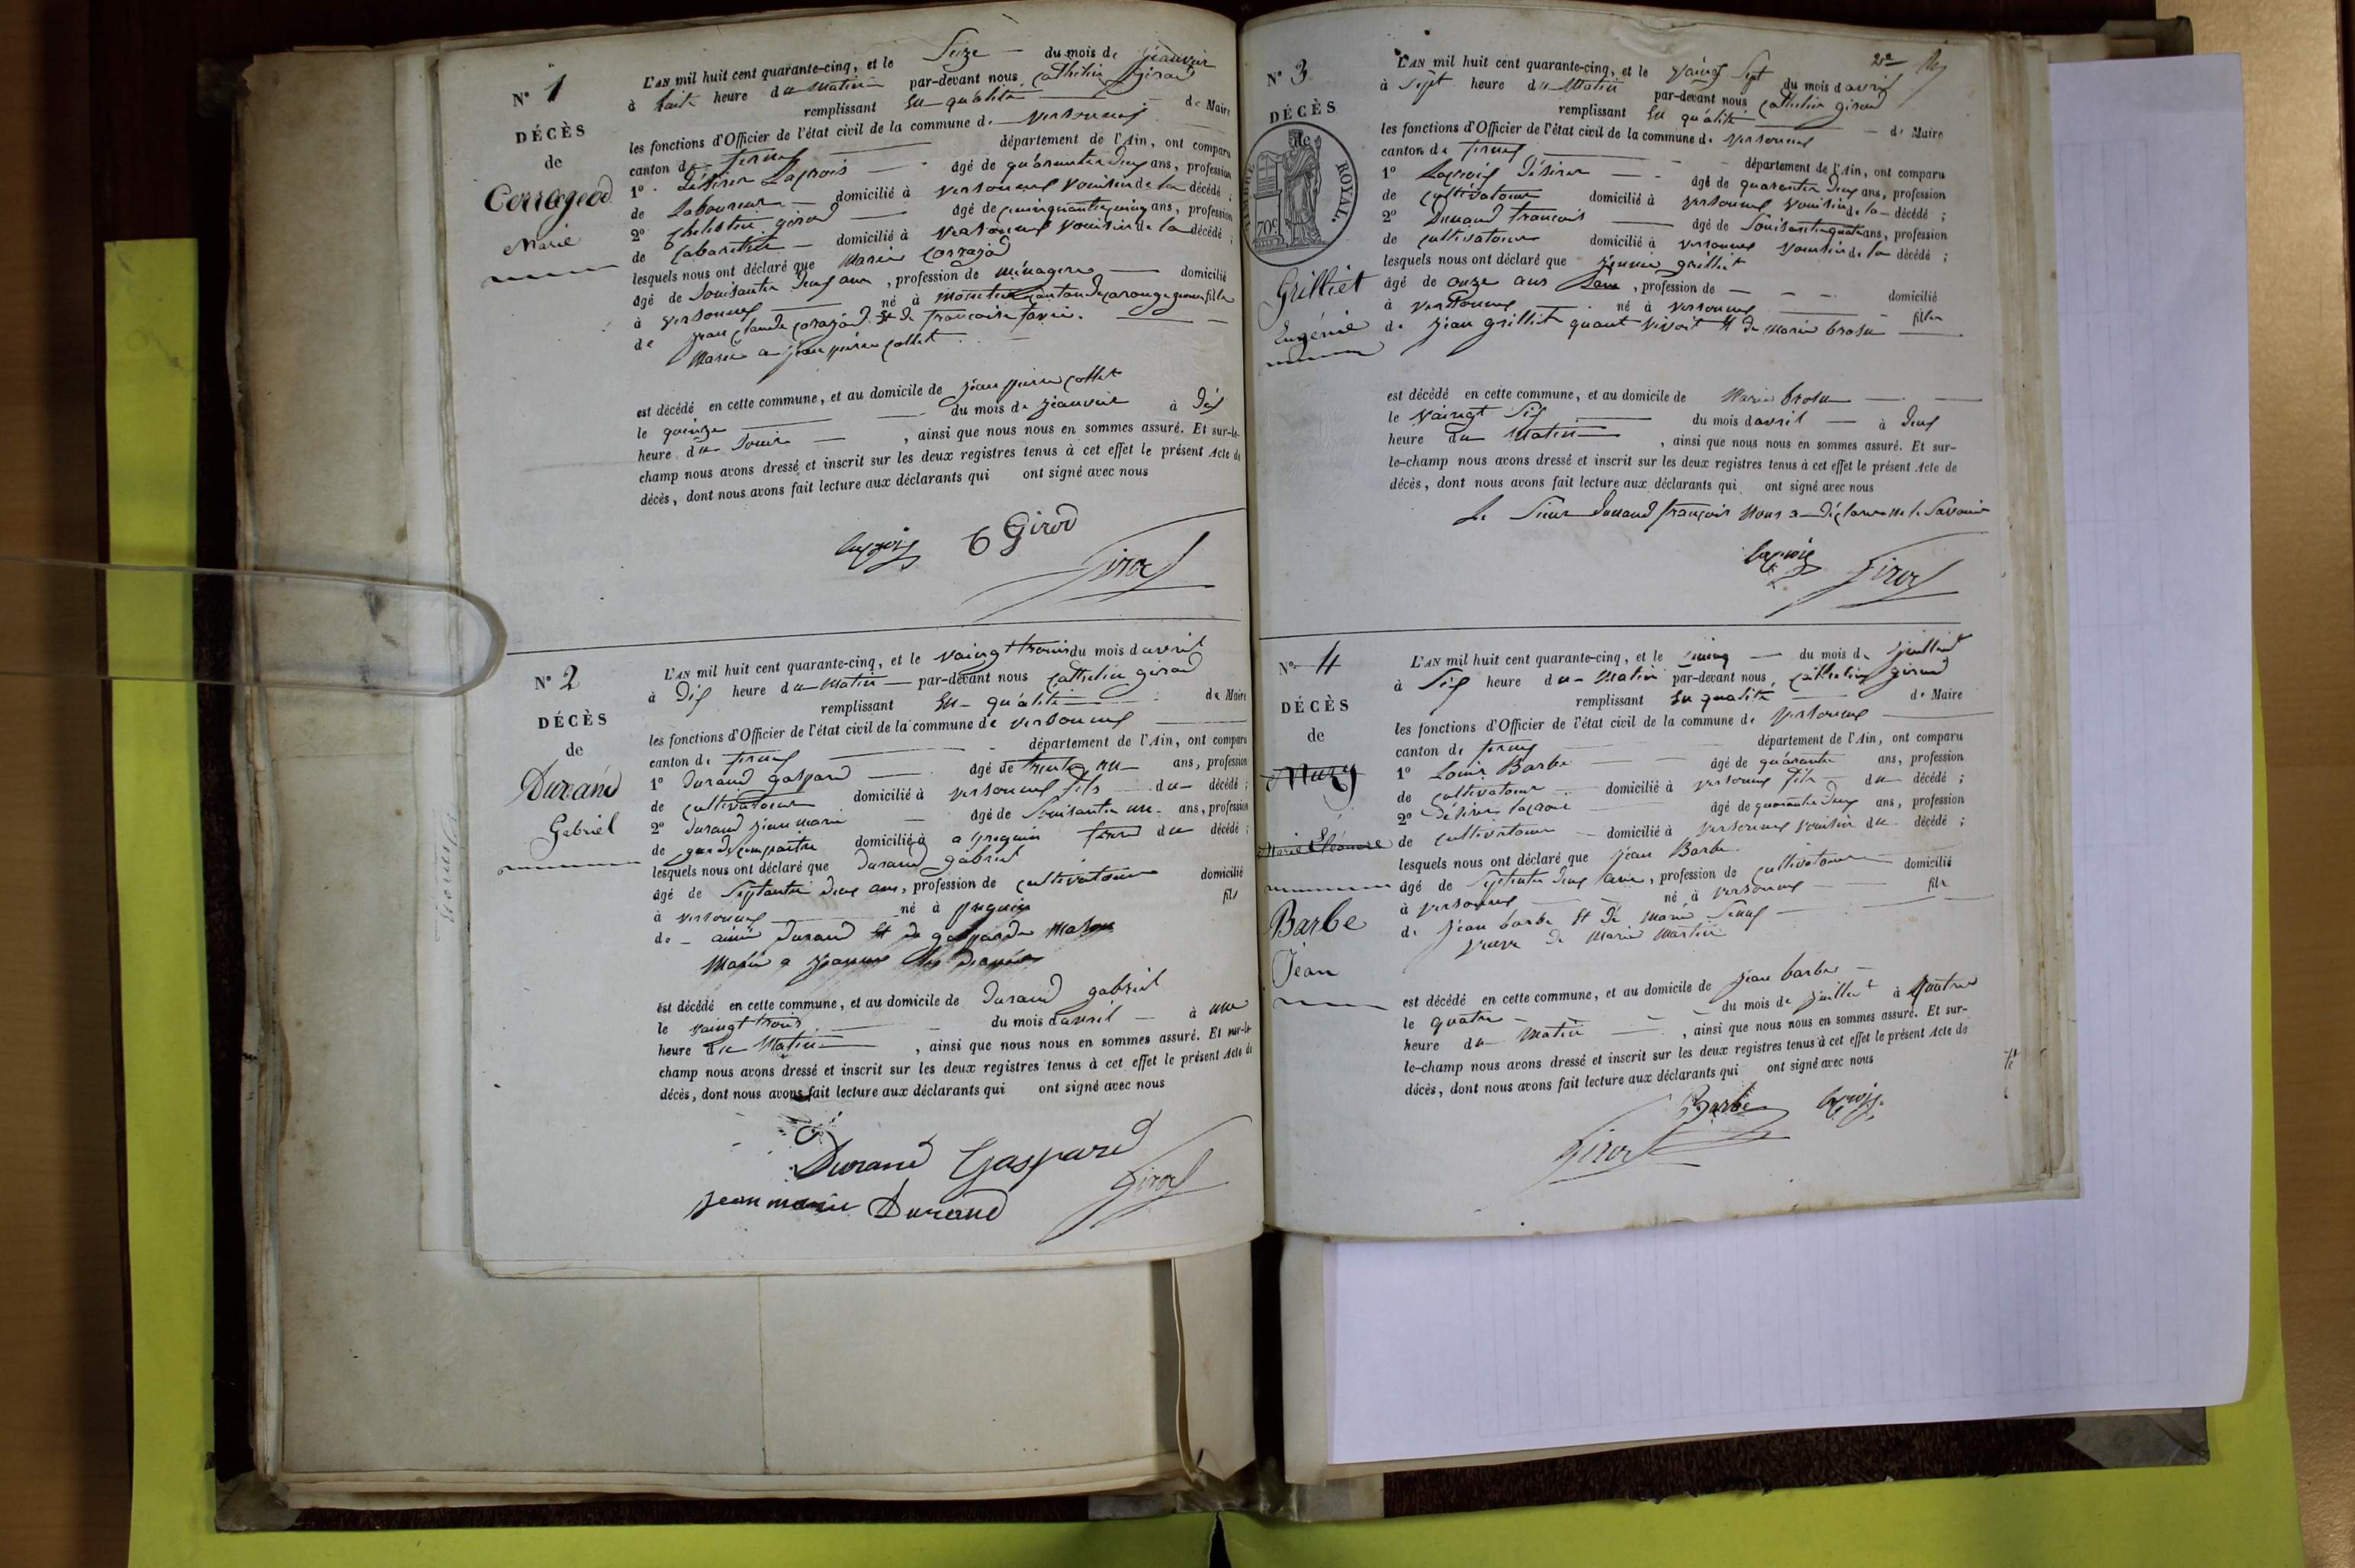 N° 1
DÉCÈS
de
Corrageod
Marie
L'AN mil huit cent quarante-cinq, et le Seize du mois de jeanvier
à huit heure du Matin par-devant nous Cathelin girod
remplissant En qualité de Maire
les fonctions d'Officier de l'état civil de la commune de versonnex
canton de ferney département de l'Ain, ont comparu
1° Désirer Lacroix âgé de quarante deux ans, profession
de Laboureur domicilié à versonnex voisin de la décédé ;
2° girod âgé de cinquante cinq ans, profession
de Cabaretier domicilié à versonnex voisin de la décédé ;
lesquels nous ont déclaré que Marie Corrajod
âgé de Soixante deux ans, profession de ménagere domicilié
à versonnex né à canton de carouge fille
de jean claude corajod Et de francoise
Marié a jean pierre collet
est décédé en cette commune, et au domicile de jean pierre collet
le quinze du mois de jeanvier à dix
heure du Soir , ainsi que nous nous en sommes assuré. Et sur-le-
champ nous avons dressé et inscrit sur les deux registres tenus à cet effet le présent Acte de
décès, dont nous avons fait lecture aux déclarants qui ont signé avec nous
lacroix C Girod
Girod
N° 2
DÉCÈS
de
Durand
Gabriel
L'AN mil huit cent quarante-cinq, et le vaingt trois du mois d avril
à Dix heure du Matin par-devant nous Cathelin girod
remplissant En qualité de Maire
les fonctions d'Officier de l'état civil de la commune de versonnex
canton de ferney département de l'Ain, ont comparu
1° durand gaspard âgé de trente un ans, profession
de cultivateur domicilié à versonnex fils du décédé ;
2° durand jean marie âgé de Soixante un ans, profession
de garde champaitre domicilié à a preguin frere du décédé ;
lesquels nous ont déclaré que durand gabriel
âgé de Septante deux ans, profession de cultivateur domicilié
à versonnex né à preguin fils
de aimé durand Et de gasparde
Marié a jeanne
est décédé en cette commune, et au domicile de durand gabriel
le vaingt trois du mois d avril à une
heure du Matin , ainsi que nous nous en sommes assuré. Et sur-le-
champ nous avons dressé et inscrit sur les deux registres tenus à cet effet le présent Acte de
décès, dont nous avons fait lecture aux déclarants qui ont signé avec nous
Durand Gaspard
jean marie Durand Girod
2e
N° 3
DÉCÈS
de
TIMBRE ROYAL.
70c
Grilliet
Eugénie
L'AN mil huit cent quarante-cinq, et le vaingt Sept du mois d avril
à Sept heure du Matin par-devant nous Cathelin girod
remplissant En qualité de Maire
les fonctions d'Officier de l'état civil de la commune de versonnex
canton de ferney département de l'Ain, ont comparu
1° Lacroix désirer âgé de quarante deux ans, profession
de cultivateur domicilié à versonnex voisin de la décédé ;
2° Durand francois âgé de Soixante quatre ans, profession
de cultivateur domicilié à versonnex voisin de la décédé ;
lesquels nous ont déclaré que grilliet
âgé de onze ans , profession de domicilié
à versonnex né à versonnex fille
de jean grilliet quant vivoit Et de marie brosse
est décédé en cette commune, et au domicile de Marie brosse
le vaingt Six du mois d avril à deux
heure du Matin , ainsi que nous nous en sommes assuré. Et sur-
le-champ nous avons dressé et inscrit sur les deux registres tenus à cet effet le présent Acte de
décès, dont nous avons fait lecture aux déclarants qui ont signé avec nous
Le Sieur durand françois Nous a déclaré ne le Savoir
lacroix Girod
N° 4
DÉCÈS
de
Mury
Marie Eléonore
Barbe
Jean
L'AN mil huit cent quarante-cinq, et le cinq du mois de juillet
à Six heure du Matin par-devant nous Cathelin girod
remplissant En qualité de Maire
les fonctions d'Officier de l'état civil de la commune de versonnex
canton de ferney département de l'Ain, ont comparu
1° Louis Barbe âgé de quarante ans, profession
de cultivateur domicilié à versonnex fils du décédé ;
2° Désirer lacroix âgé de quarante deux ans, profession
de cultivateur domicilié à versonnex voisin du décédé ;
lesquels nous ont déclaré que jean Barbe
âgé de Septente deux ans, profession de cultivateur domicilié
à versonnex né à versonnex fils
de jean barbe Et de Marie
veuve de Marie Martin
est décédé en cette commune, et au domicile de jean barbe
le quatre du mois de juillet à quatre
heure du Matin , ainsi que nous nous en sommes assuré. Et sur-
le-champ nous avons dressé et inscrit sur les deux registres tenus à cet effet le présent Acte de
décès, dont nous avons fait lecture aux déclarants qui ont signé avec nous
Barbe lacroix
Girod